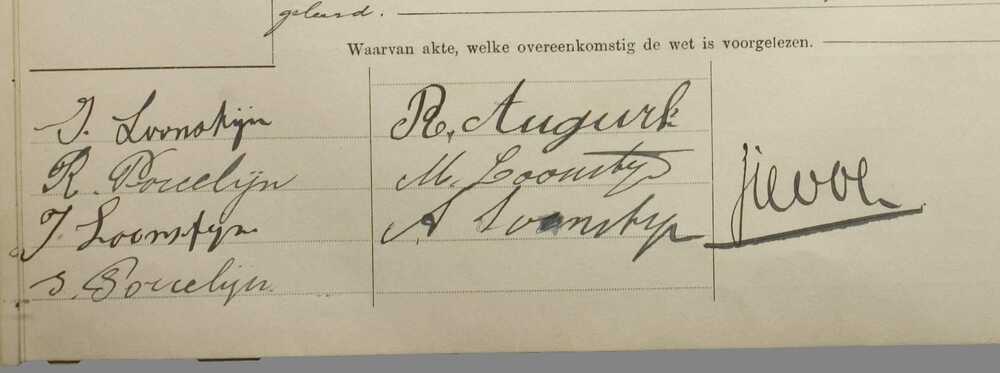 geleerd.
Waarvan akte, welke overeenkomstig de wet is voorgelezen.
J. Loonstijn
R. Porcelijn
J Loonstijn
S. Porcelijn.
R. Augurk
M. Loonstijn
A Loonstijn